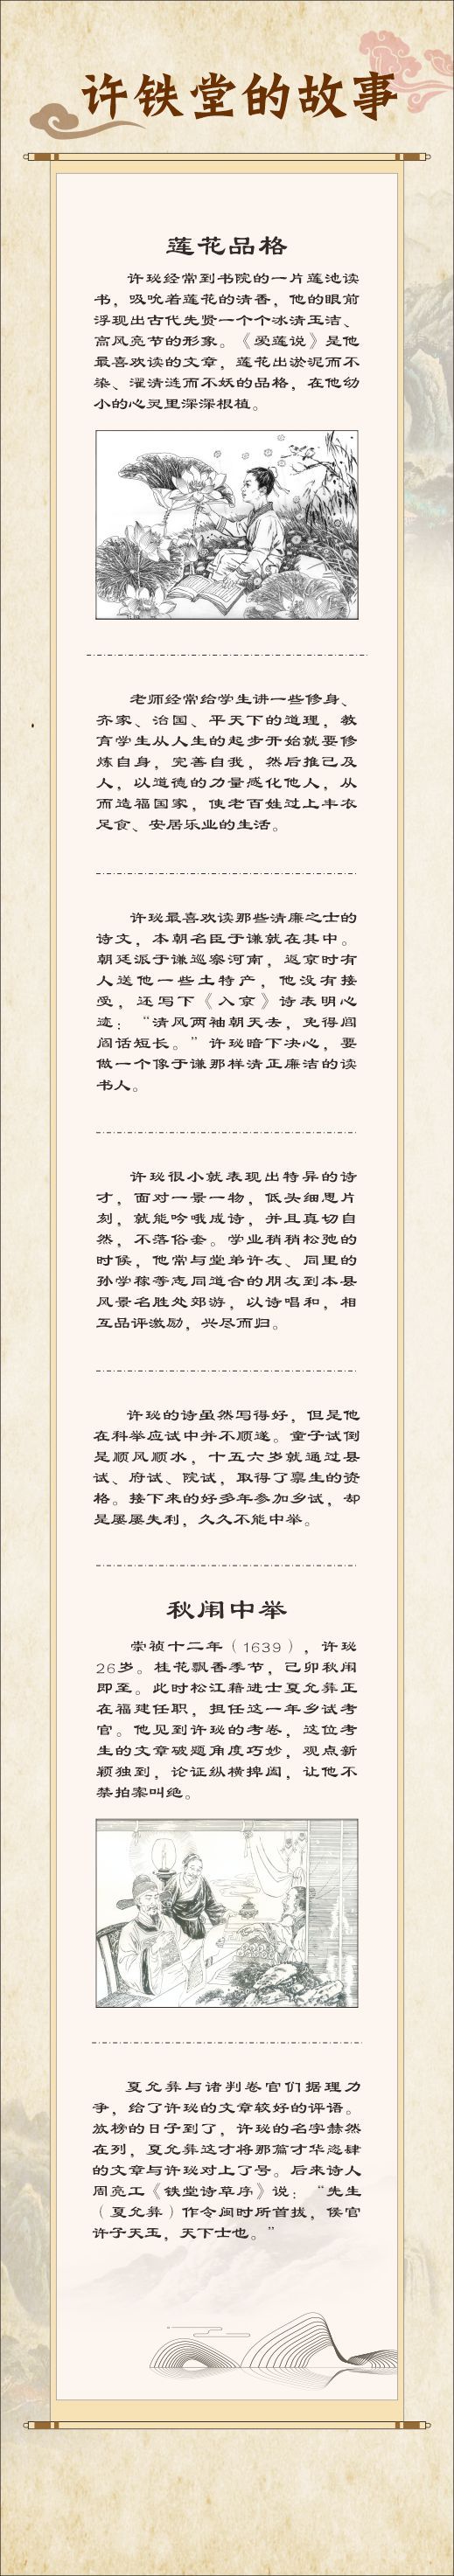 许铁堂的故事
莲花品格
许珌经常到书院的一片莲池读
书，吸吮着莲花的清香，他的眼前
浮现出古代先贤一个个冰清玉洁、
高风亮节的形象。《爱莲说》是他
最喜欢读的文章，莲花出淤泥而不
染、濯清涟而不妖的品格，在他幼
小的心灵里深深根植。
老师经常给学生讲一些修身、
齐家、治国、平天下的道理，教
育学生从人生的起步开始就要修
炼自身，完善自我，然后推己及
人，以道德的力量感化他人，从
而造福国家，使老百姓过上丰衣
足食、安居乐业的生活。
许珌最喜欢读那些清廉之士的
诗文，本朝名臣于谦就在其中。
朝廷派于谦巡察河南，返京时有
人送他一些土特产，他没有接
受，还写下《入京》诗表明心
迹：“清风两袖朝天去，免得闾
阎话短长。”许珌暗下决心，要
做一个像于谦那样清正廉洁的读
书人。
许珌很小就表现出特异的诗
才，面对一景一物，低头细思片
刻，就能吟哦成诗，并且真切自
然，不落俗套。学业稍稍松弛的
时候，他常与堂弟许友、同里的
孙学稼等志同道合的朋友到本县
风景名胜处郊游，以诗唱和，相
互品评激励，兴尽而归。
许珌的诗虽然写得好，但是他
在科举应试中并不顺遂。童子试倒
是顺风顺水，十五六岁就通过县
试、府试、院试，取得了禀生的资
格。接下来的好多年参加乡试，却
是屡屡失利，久久不能中举。
秋闱中举
崇祯十二年（1639），许珌
26岁。桂花飘香季节，己卯秋闱
即至。此时松江籍进士夏允彝正
在福建任职，担任这一年乡试考
官。他见到许珌的考卷，这位考
生的文章破题角度巧妙，观点新
颖独到，论证纵横捭阖，让他不
禁拍案叫绝。
夏允彝与诸判卷官们据理力
争，给了许珌的文章较好的评语。
放榜的日子到了，许珌的名字赫然
在列，夏允彝这才将那篇才华恣肆
的文章与许珌对上了号。后来诗人
周亮工《铁堂诗草序》说：“先生
（夏允彝）作令闽时所首拔，侯官
许子天玉，天下士也。”